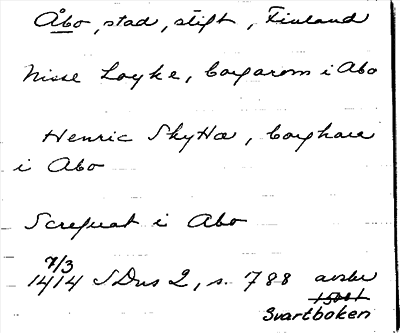 Åbo, stad, stift, Finland
Nisse Loyke, borgarom i Abo
Henric SkyHa, borghare
i Abo
Screfuat i Abo
7/3
1414 SDns 2, s. 788 avskr
Svartboken